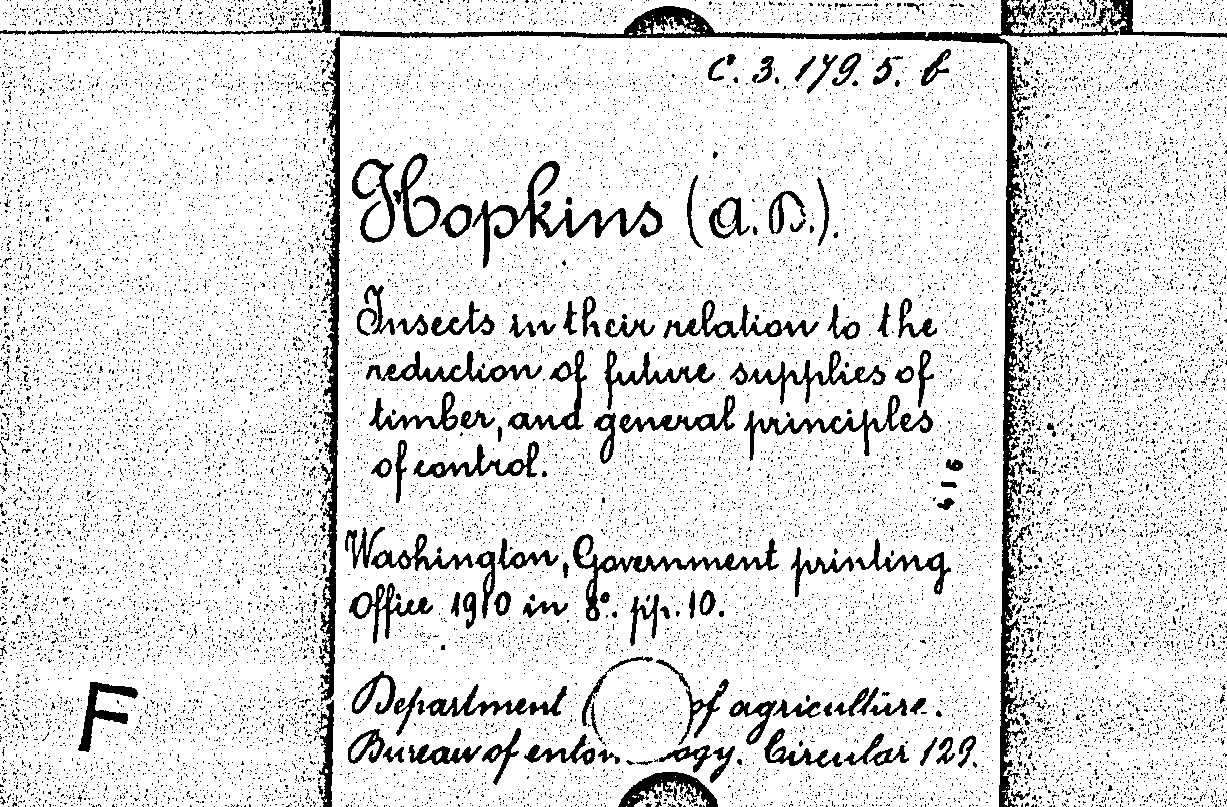 C. 3. 179. 5. b
Hopkins (A. D.).
Insects in their relation to the
reduction of future supplies of
timber, and general principles
of control.
616
Washington, Government printing
Office 1910 in 8°. pp. 10.
Department of agriculture.
Bureau of entomology. Circular 129.
F